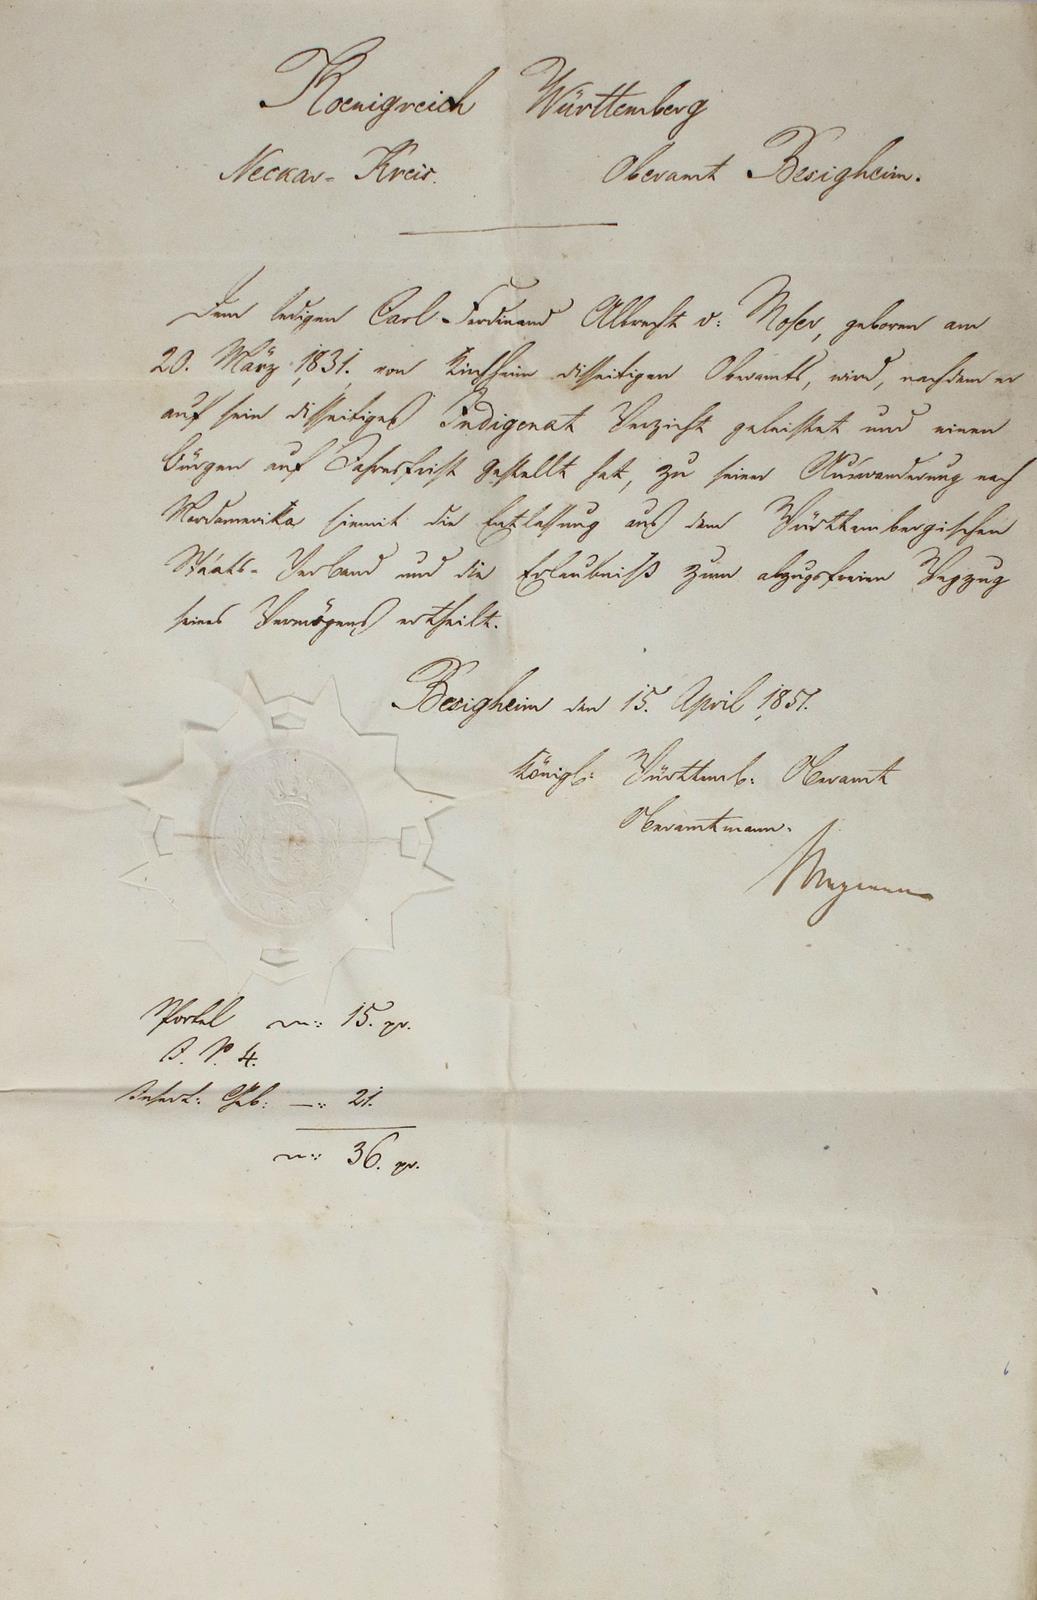 Koenigreich Württemberg
Neckar-Kreis. Oberamt Besigheim.
Dem ledigen Carl Ferdinand Albrecht v: Moser, geboren am
20. März 1831. von Kirchheim disseitigen Oberamts, wird, nachdem er
auf sein disseitiges Indigenat Verzicht geleistet und einen
Bürgen auf Jahresfrist gestellt hat, zu seiner Auswanderung nach
Nordamerika hiemit die Entlassung aus dem Württembergischen
Staats-Verband und die Erlaubniß zum abzugsfreien Wegzug
seines Vermögens ertheilt.
Besigheim den 15. April 1851.
Königl: Württemb: Oberamt
Oberamtmann.
Sportel 15.
4.
Insert: Geb: —: 21.
36.